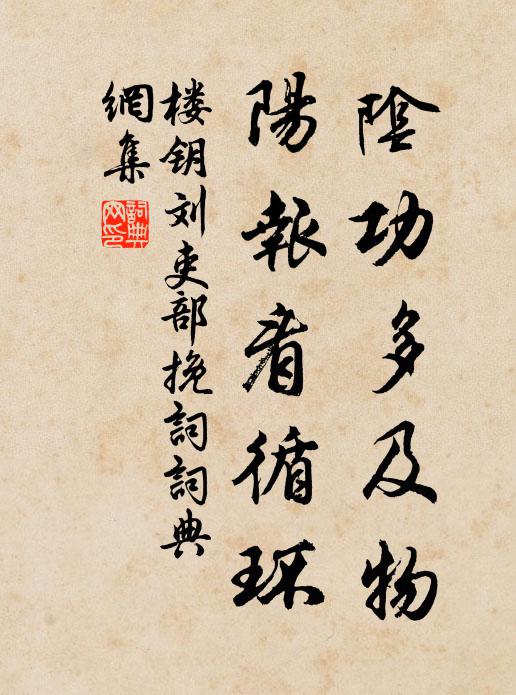 陰功多及物
陽報看循环
楼钥刘吏部挽詞詞典
網集
詞典
网印